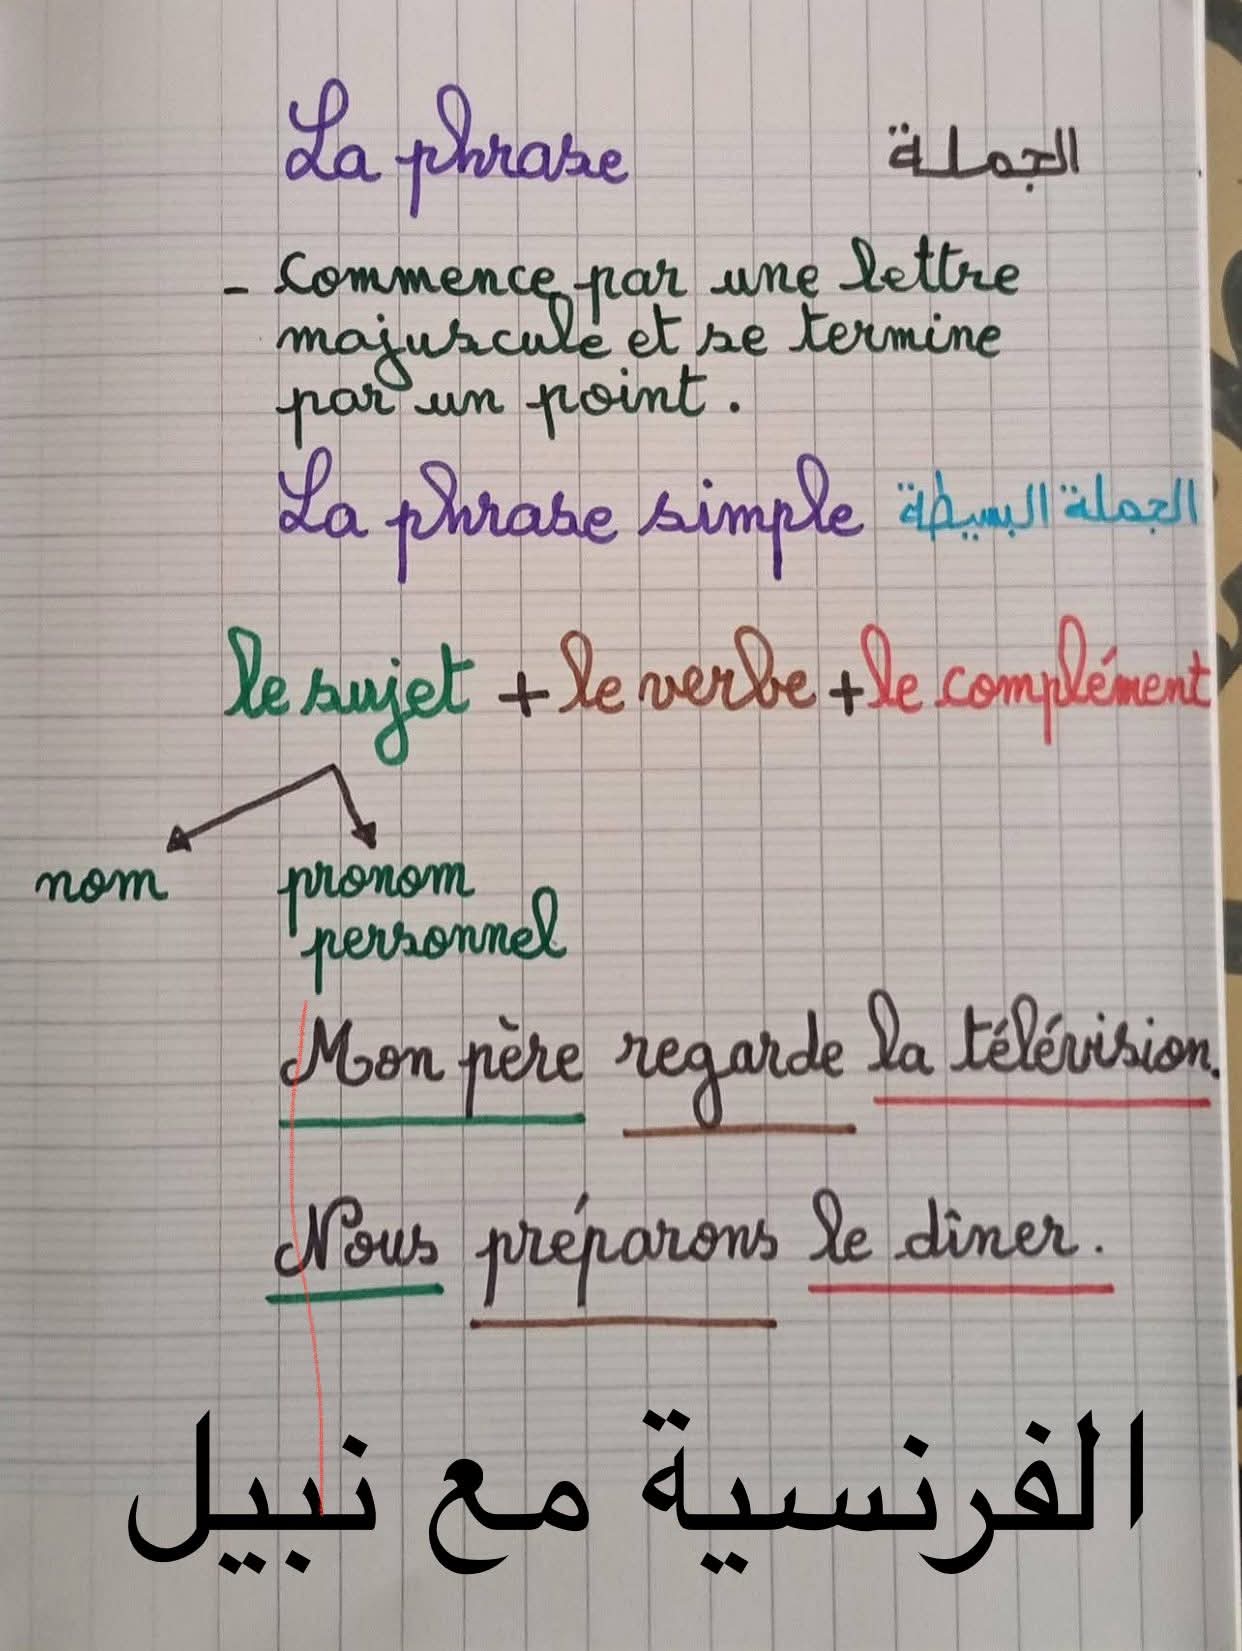 La phrase الجملة
- Commence par une lettre
majuscule et se termine
par un point.
La phrase simple الجملة البسيطة
le sujet + le verbe + le complément
nom pronom
personnel
Mon père regarde la télévision.
Nous préparons le dîner.
الفرنسية مع نبيل